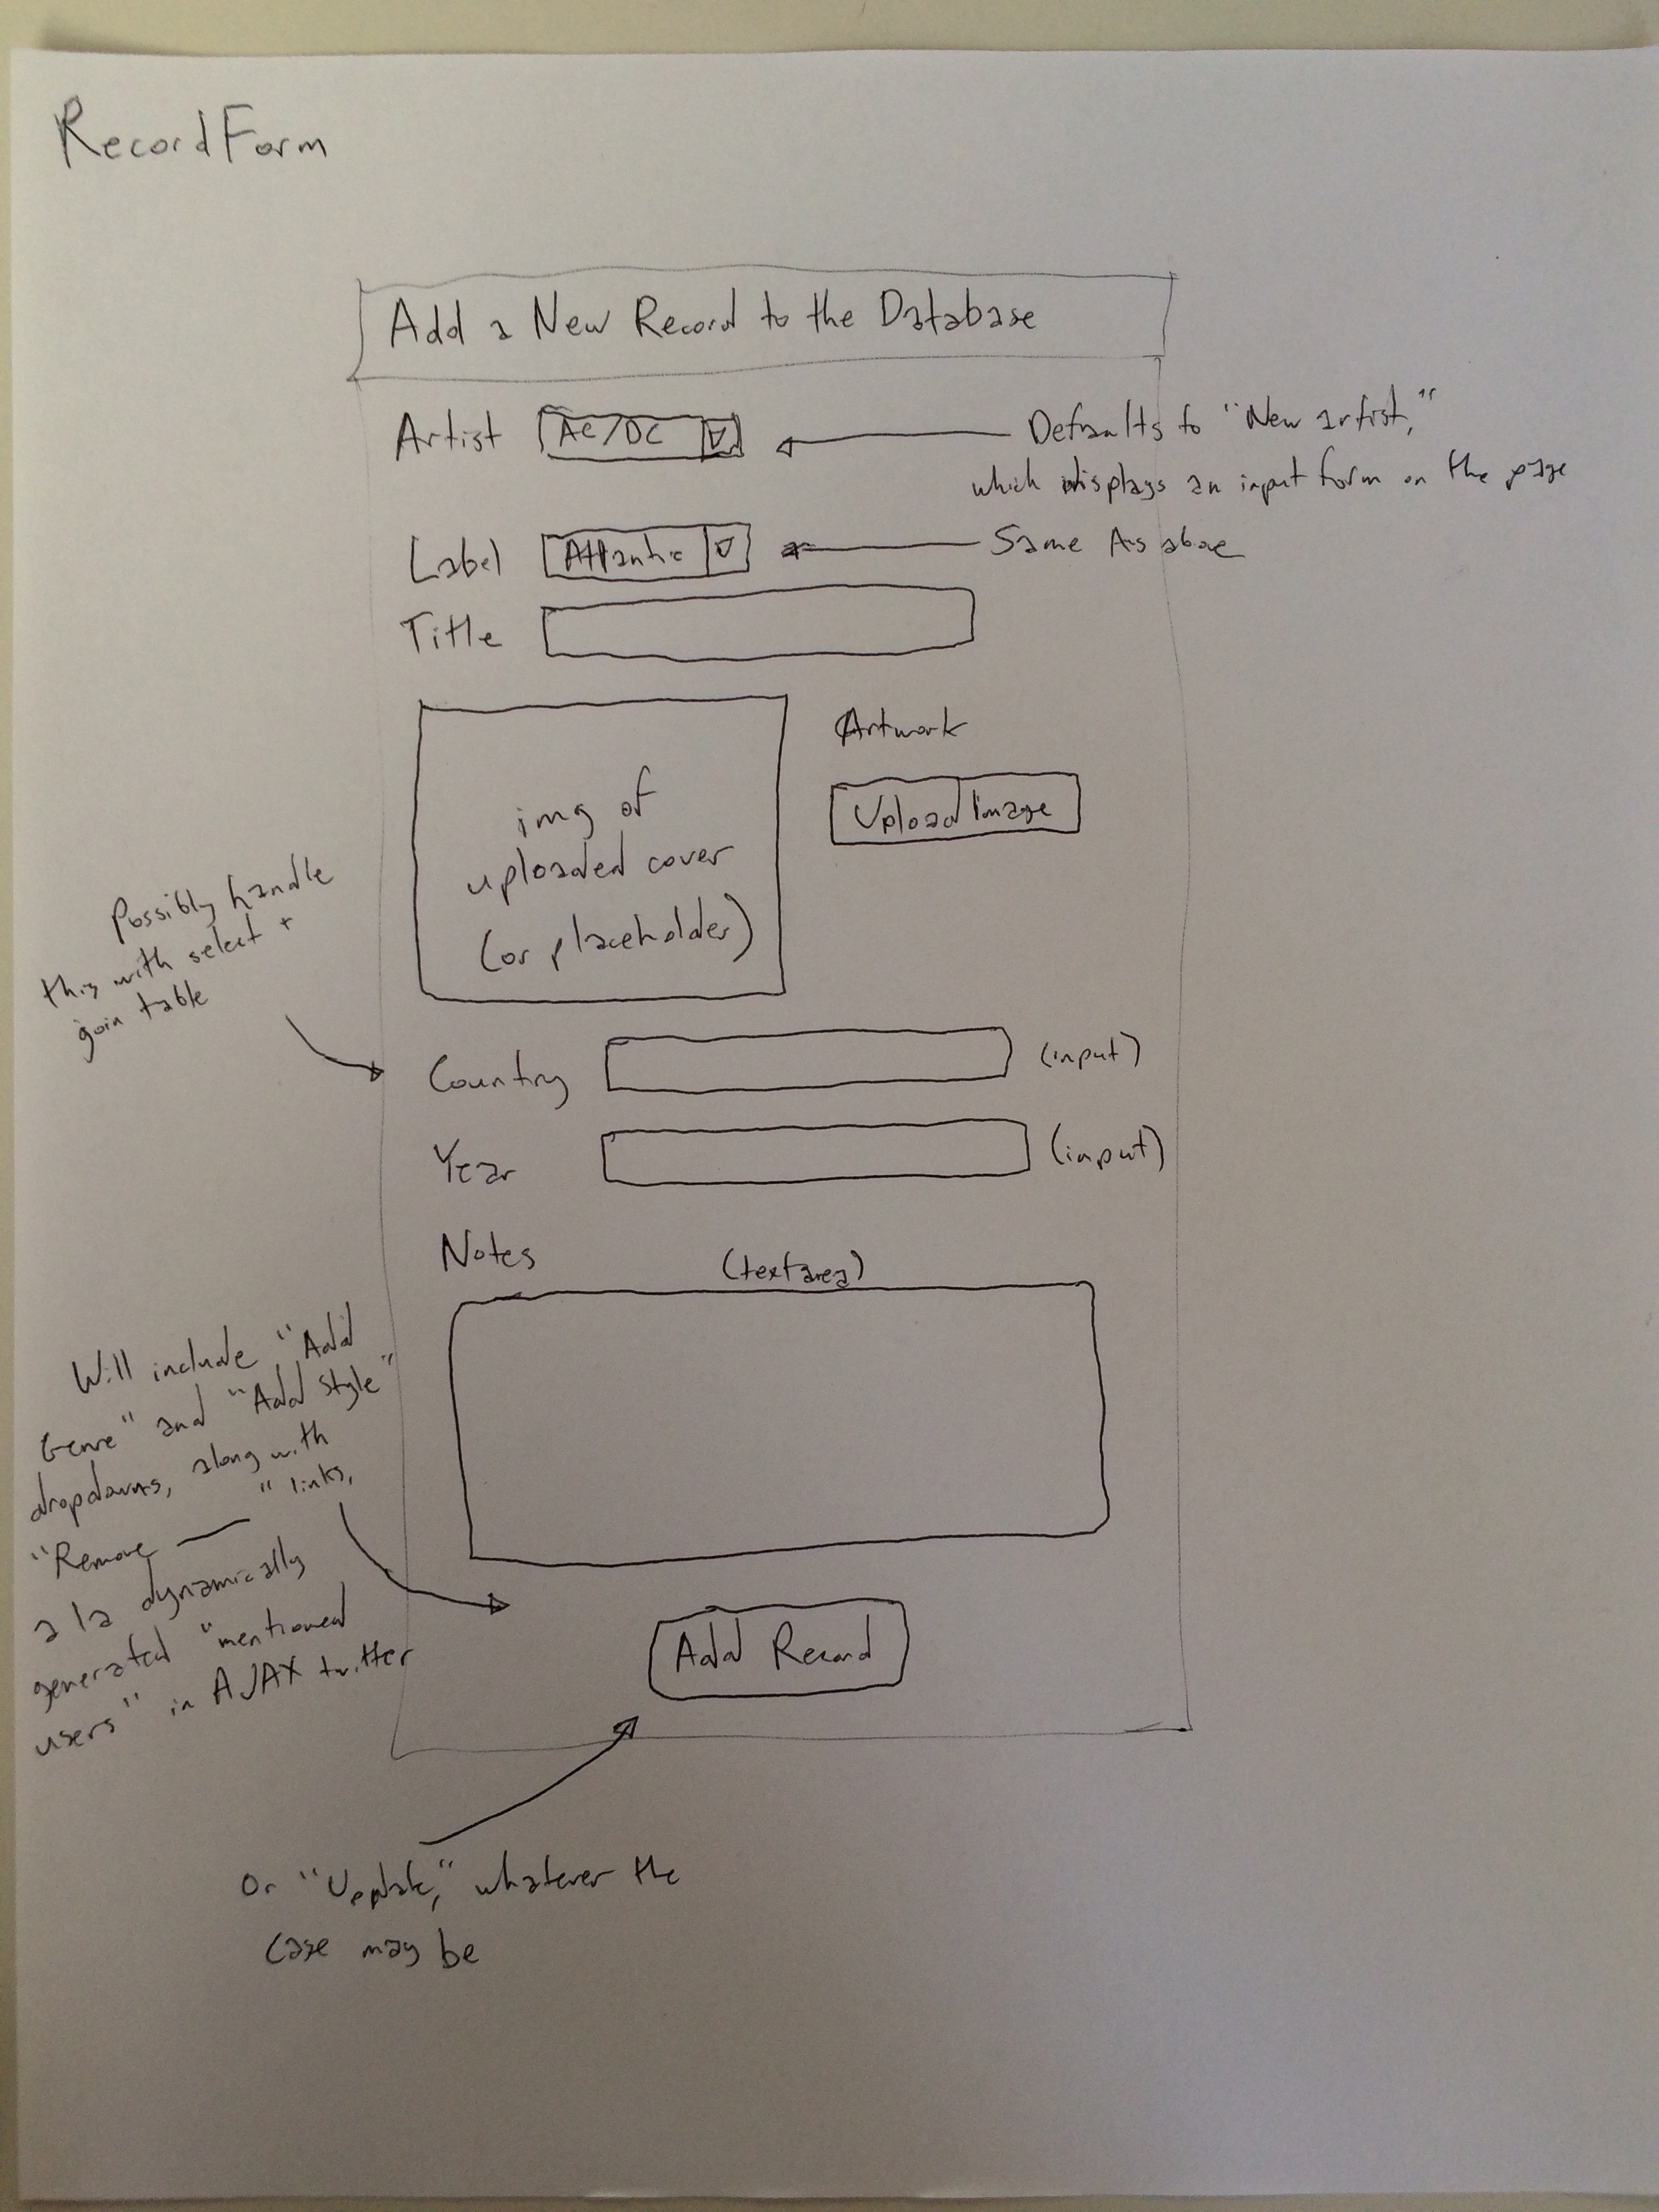 RecordForm
Add a New Record to the Database
Artist AC/DC
Defaults to "New artist,"
which displays an input form on the page
Label Atlantic
Same As above
Title
Artwork
Upload Image
img of
uploaded cover
(or placeholder)
Possibly handle
this with select +
join table
Country (input)
Year (input)
Notes (textarea)
Will include "Add
Genre" and "Add Style"
dropdowns, along with
"Remove —" links,
a la dynamically
generated "mentioned
users" in AJAX twitter
Add Record
Or "Update," whatever the
case may be